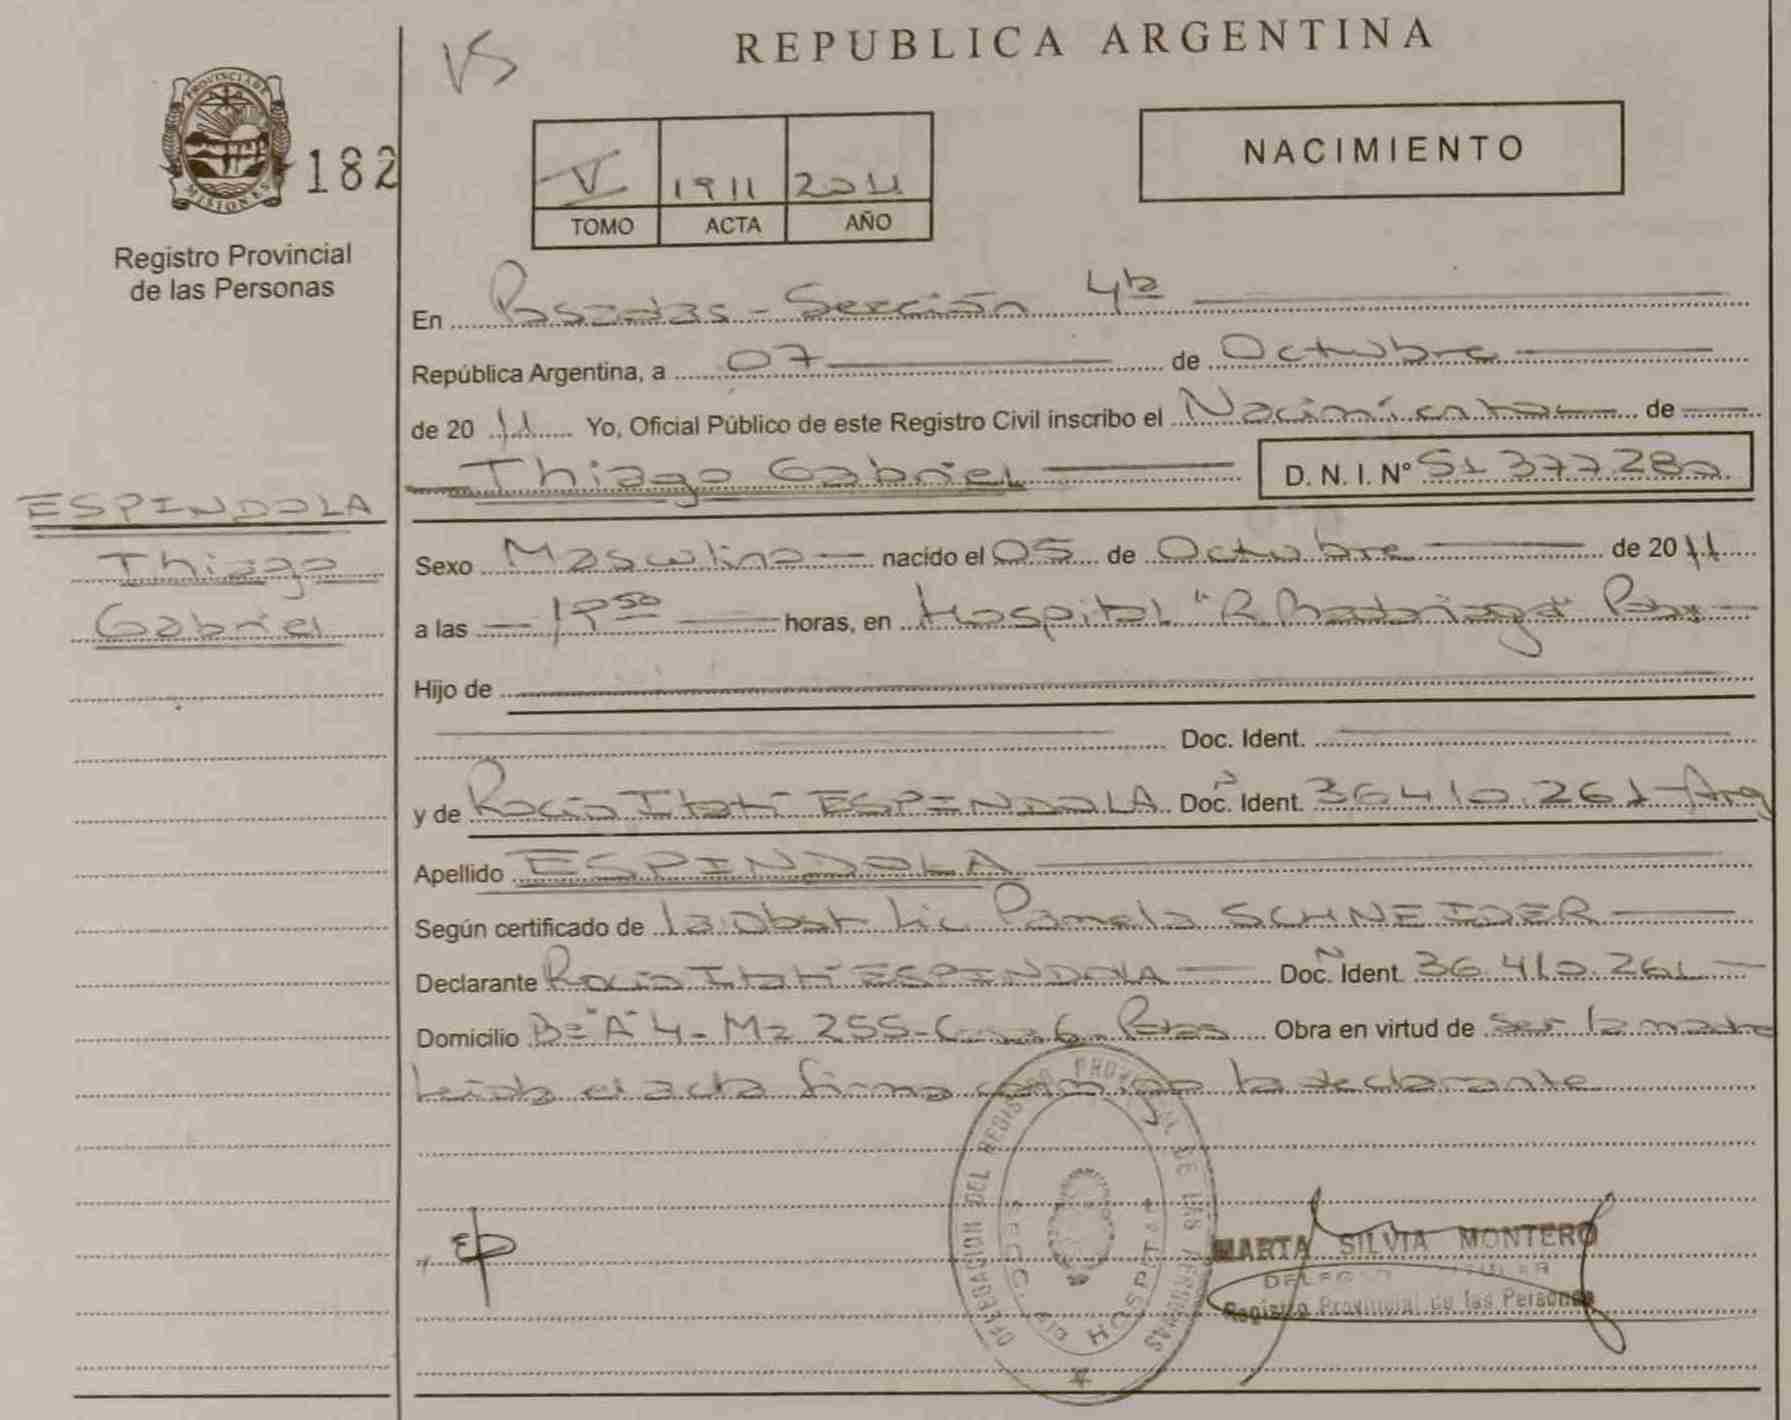 REPUBLICA ARGENTINA
VS
PROVINCIA DE MISIONES
182
Registro Provincial
de las Personas
NACIMIENTO
V 1911 2011
TOMO ACTA AÑO
En Posadas - Sección 4ta
República Argentina, a 07 de Octubre
de 20 11 Yo, Oficial Público de este Registro Civil inscribo el Nacimiento de
Thiago Gabriel D. N. I. Nº 51.377.287
ESPINDOLA
Thiago
Gabriel
Sexo Masculino nacido el 05 de Octubre de 20 11
a las horas, en Hospital "R. Madariaga" Pdas
Hijo de
Doc. Ident.
y de Rocio Itati ESPINDOLA Doc. Ident. 36.410.261 - Arg
Apellido ESPINDOLA
Según certificado de la Obst. Lic Pamela SCHNEIDER
Declarante Rocio Itati ESPINDOLA Doc. Ident. 36.410.261
Domicilio Bº "A" 4 - Mz 255 - Casa 6 - Pdas Obra en virtud de Ser la madre
Leida el acta firma conmigo la declarante
DELEGACION DEL REGISTRO PROVINCIAL DE LAS PERSONAS
SECC. 4ta HOSPITAL
MARTA SILVIA MONTERO
Registro Provincial de las Personas